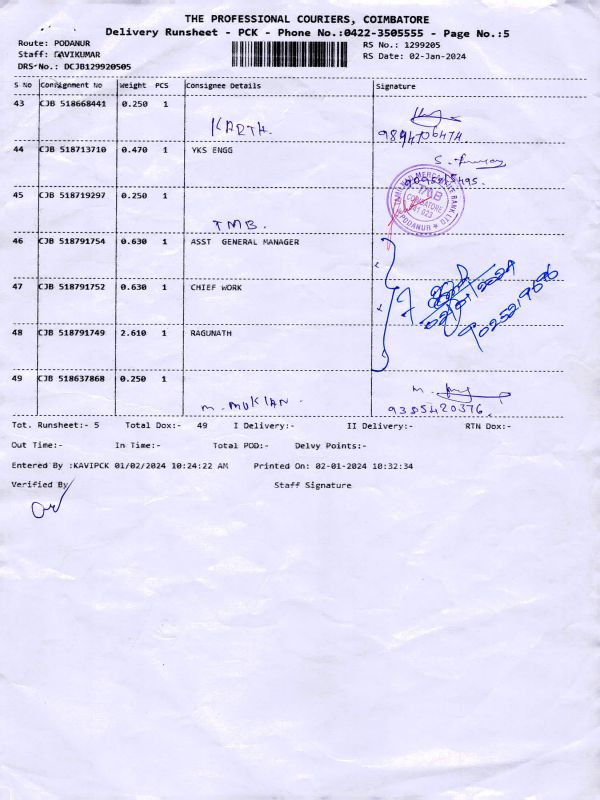 THE PROFESSIONAL COURIERS, COIMBATORE
Delivery Runsheet - PCK - Phone No.:0422-3505555 - Page No.:5
Route: PODANUR
RS No.: 1299205
Staff: RAVIKUMAR
RS Date: 02-Jan-2024
DRS No.: DCJB129920505
S No Consignment No Weight PCS Consignee Details Signature
43 CJB 518668441 0.250 1
KARTH.
44 CJB 518713710 0.470 1 YKS ENGG
45 CJB 518719297 0.250 1
TAMILNAD MERCANTILE BANK LTD.
TMB
COIMBATORE
641 023
PODANUR
TMB.
46 CJB 518791754 0.630 1 ASST GENERAL MANAGER
47 CJB 518791752 0.630 1 CHIEF WORK
9025219696
48 CJB 518791749 2.610 1 RAGUNATH
49 CJB 518637868 0.250 1
9385420376.
Tot. Runsheet:- 5 Total Dox:- 49 I Delivery:- II Delivery:- RTN Dox:-
Out Time:- In Time:- Total POD:- Delvy Points:-
Entered By :KAVIPCK 01/02/2024 10:24:22 AM Printed On: 02-01-2024 10:32:34
Verified By Staff Signature